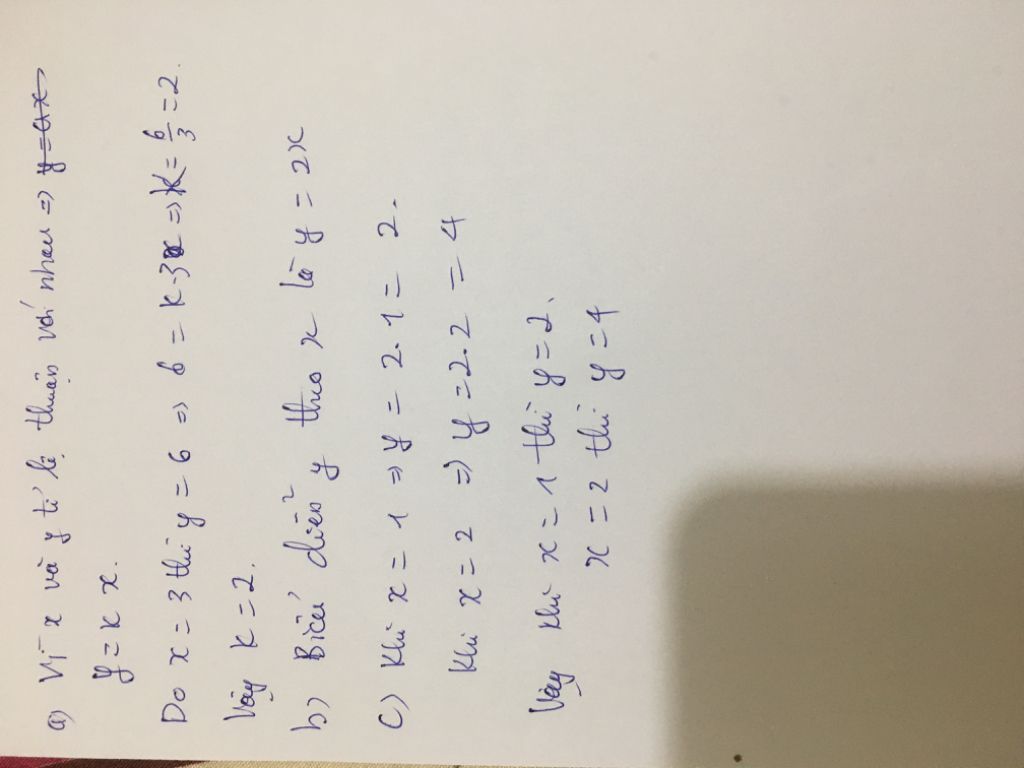 a) Vì x và y tỉ lệ thuận với nhau => y = ax
y = k x.
Do x = 3 thì y = 6 => 6 = k.3 => k = 6/3 = 2.
Vậy k = 2.
b) Biểu diễn y theo x là y = 2x
c) Khi x = 1 => y = 2.1 = 2.
Khi x = 2 => y = 2.2 = 4
Vậy khi x = 1 thì y = 2.
x = 2 thì y = 4